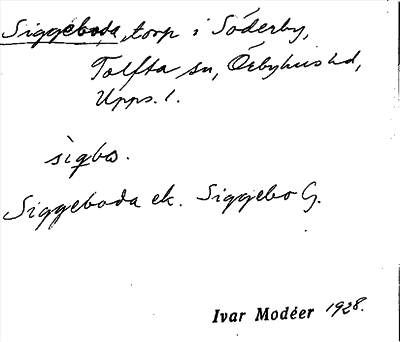 Siggeboda, torp i Söderby,
Tolfta sn, Örbyhus hd,
Upps. l.
sìgbo.
Siggeboda ek. Siggebo G.
Ivar Modéer 1928.